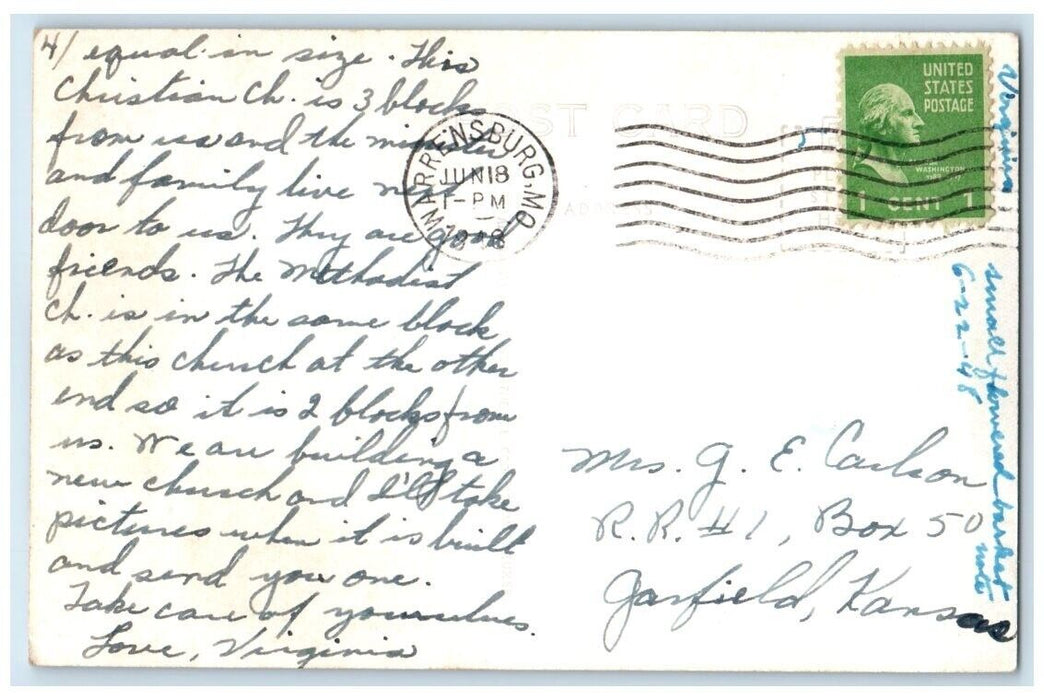 4/ equal in size. This
Christian Ch. is 3 blocks
from us and the minister
and family live next
door to us. They are good
friends. The Methodist
Ch. is in the same block
as this church at the other
end so it is 2 blocks from
us. We are building a
new church and I'll take
pictures when it is built
and send you one.
Take care of yourselves.
Love, Virginia
POST CARD
WARRENSBURG, MO.
JUN 18
1-PM
UNITED
STATES
POSTAGE
WASHINGTON
1 CENT 1
Mrs. G. E. Carlson
R.R. #1, Box 50
Garfield, Kansas
Virginia
small flowered basket
note
6-22-48